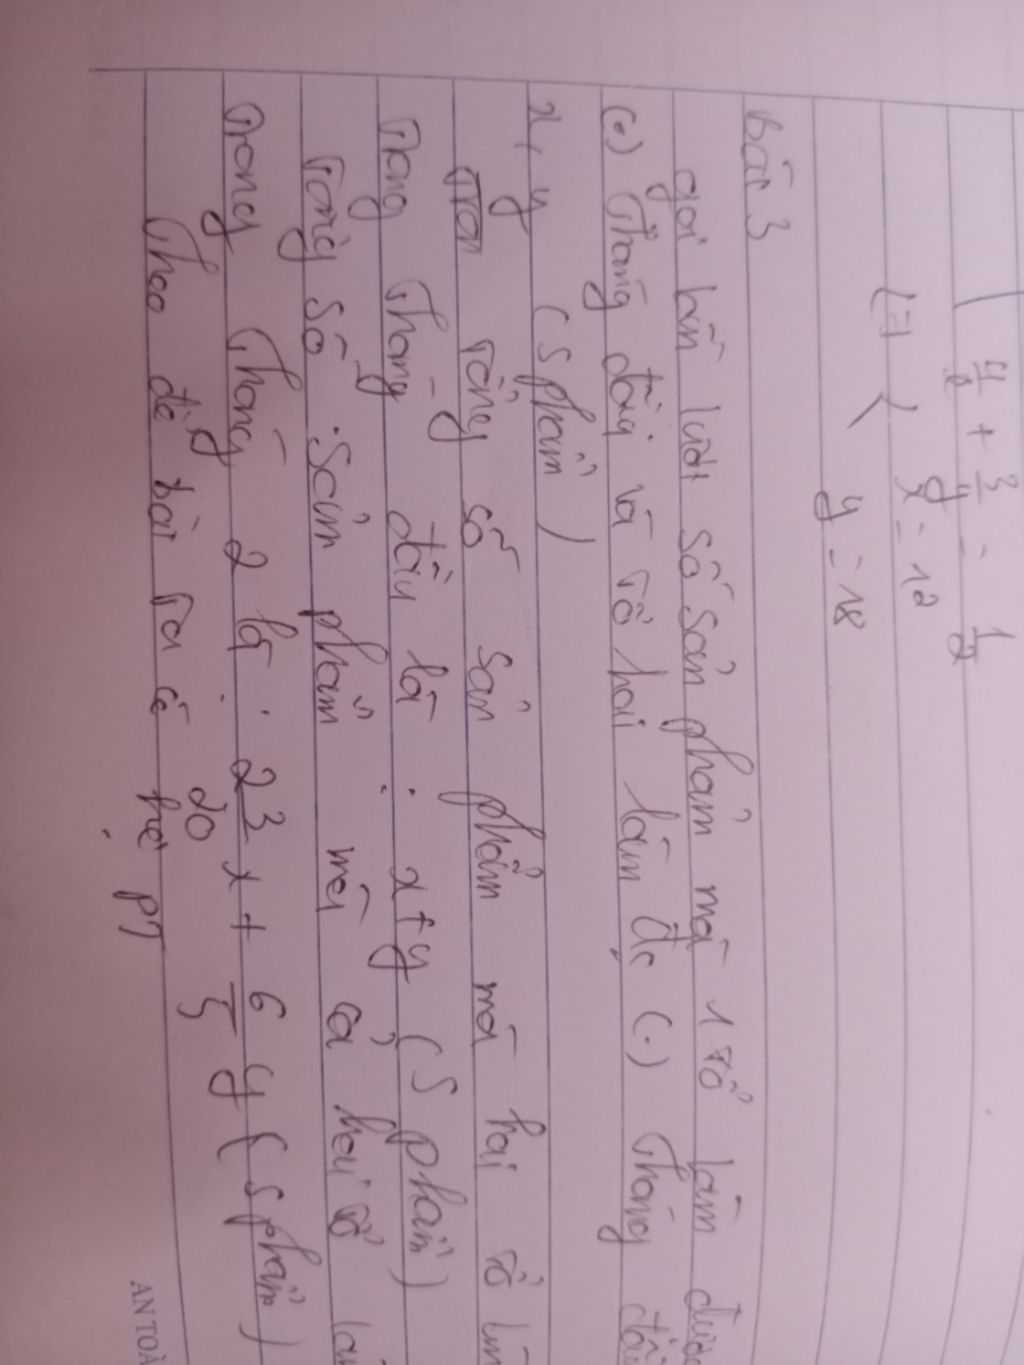 4/x + 3/y = 1/2
(=) { x = 12
y = 18
Bài 3
gọi lần lượt số sản phẩm mà 1 tổ làm được
(.) tháng đầu và tổ hai làm đc (.) tháng đầu
x, y (sphẩm)
tổng số sản phẩm mà hai tổ làm
trong tháng đầu là : x + y (sphẩm)
Tổng số sản phẩm mà cả hai tổ làm
trong tháng 2 là : 23/20 x + 6/5 y (sphẩm)
Theo đề bài ra có hệ pt
AN TOÀ